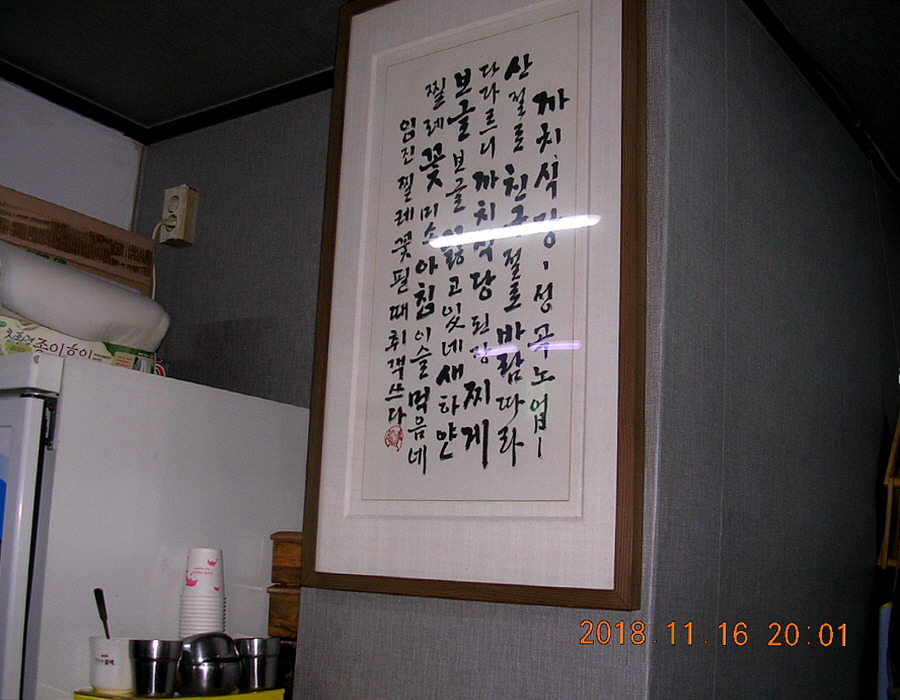 까치식당 - 성곡 노업 -
산절로 친구절로 바람따라
다다르니 까치식당 된장찌게
보글보글 끓고있네 새하얀
찔레꽃 미소 아침이슬 먹음네
임진 찔레꽃필때 취객쓰다
종이호일
2018.11.16 20:01